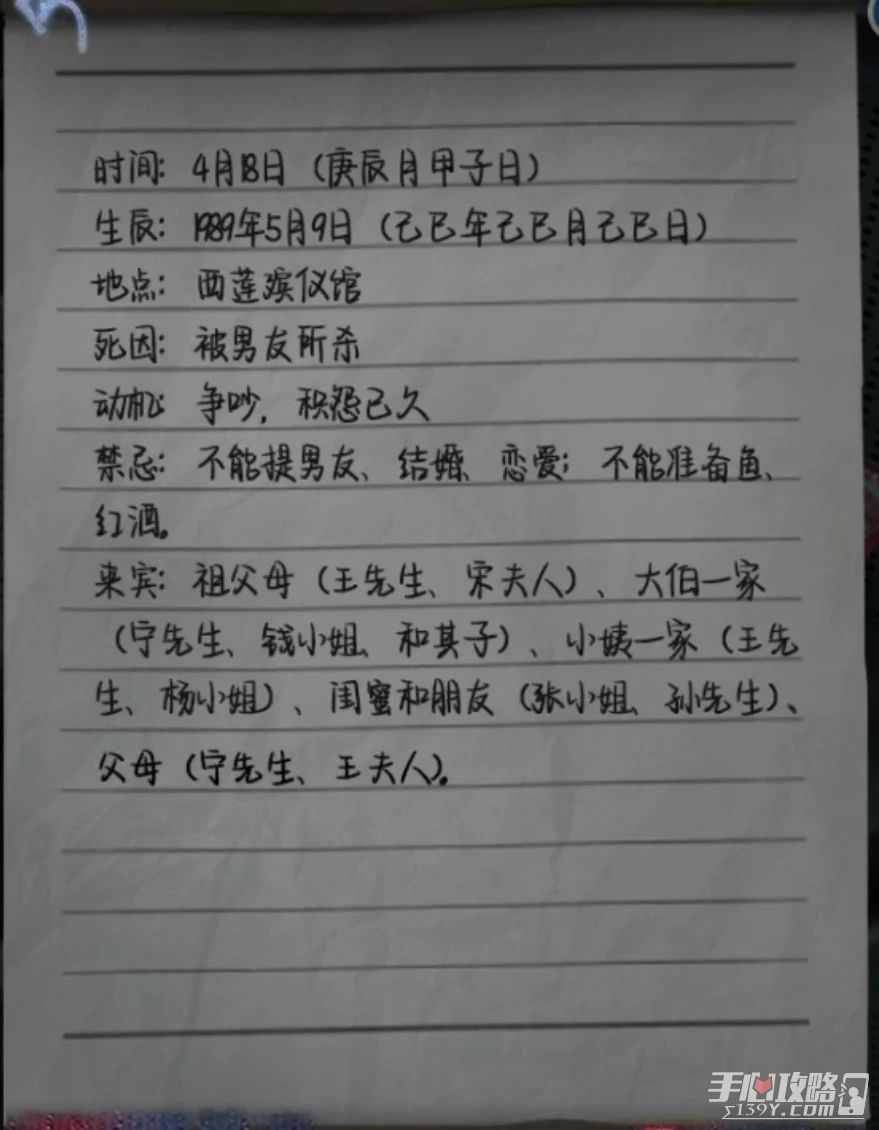 时间：4月18日（庚辰月甲子日）
生辰：1989年5月9日（己巳年己巳月己巳日）
地点：西莲殡仪馆
死因：被男友所杀
动机：争吵，积怨已久
禁忌：不能提男友、结婚、恋爱；不能准备鱼、
红酒。
来宾：祖父母（王先生、宋夫人）、大伯一家
（宁先生、钱小姐、和其子）、小姨一家（王先
生、杨小姐）、闺蜜和朋友（张小姐、孙先生）、
父母（宁先生、王夫人）。
手心攻略
s139Y.com